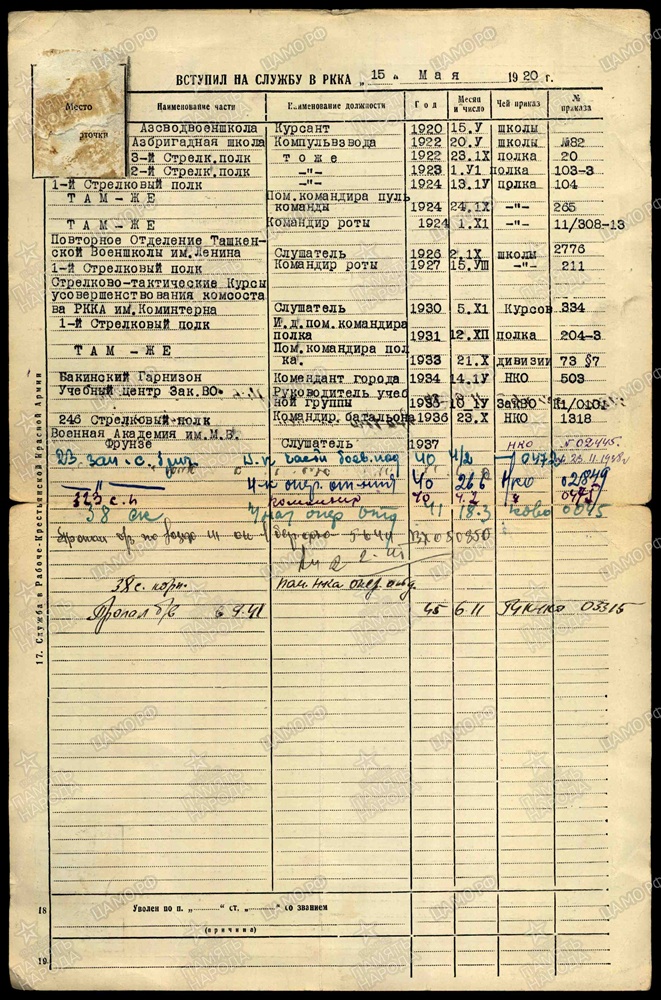 ВСТУПИЛ НА СЛУЖБУ В РККА „15" Мая 1920 г.
Место
Наименование части Наименование должности Год Месяц и число Чей приказ № приказа
Азсводвоеншкола Курсант 1920 15.У школы
Азбригадная школа Компульвзвода 1922 20.У школы №82
3-й Стрелк.полк т о же 1922 23.1X полка 20
2-й Стрелк.полк -"- 1923 1.У1 полка 103-3
1-й Стрелковый полк -"- 1924 13.1У полка 104
Т А М - Ж Е Пом.командира пуль
команды 1924 24.1X -"- 265
Т А М - Ж Е Командир роты 1924 1.X1 -"- 11/308-13
Повторное Отделение Ташкен-
ской Военшколы им.Ленина Слушатель 1926 2.1X школы 2776
1-й Стрелковый полк Командир роты 1927 15.УШ -"- 211
Стрелково-тактические Курсы
усовершенствования комсоста
ва РККА им.Коминтерна Слушатель 1930 5.X1 Курсов 334
1-й Стрелковый полк И.д.пом.командира
полка 1931 12.ХП полка 204-3
Т А М - Ж Е Пом.командира пол
ка. 1933 21.X дивизии 73 §7
Бакинский Гарнизон Комендант города 1934 14.1У НКО 503
Учебный центр Зак.ВО. Руководитель учеб
ной группы
246 Стрелковый полк Командир батальона 1936 23.X НКО 1318
Военная Академия им.М.В.
Фрунзе Слушатель 1937 НКО
40 4/2 0472
-"- 40 26.6 НКО 02849
323 с.п 40
38 ск 41 18.3 0045
38 с. корп. пом. нка опер. отд.
Пропал б/в 6.9.41 45 6.11 03315
17. Служба в Рабоче-Крестьянской Красной Армии
18 Уволен по п. „ " ст. „ " со званием
(причина)
19